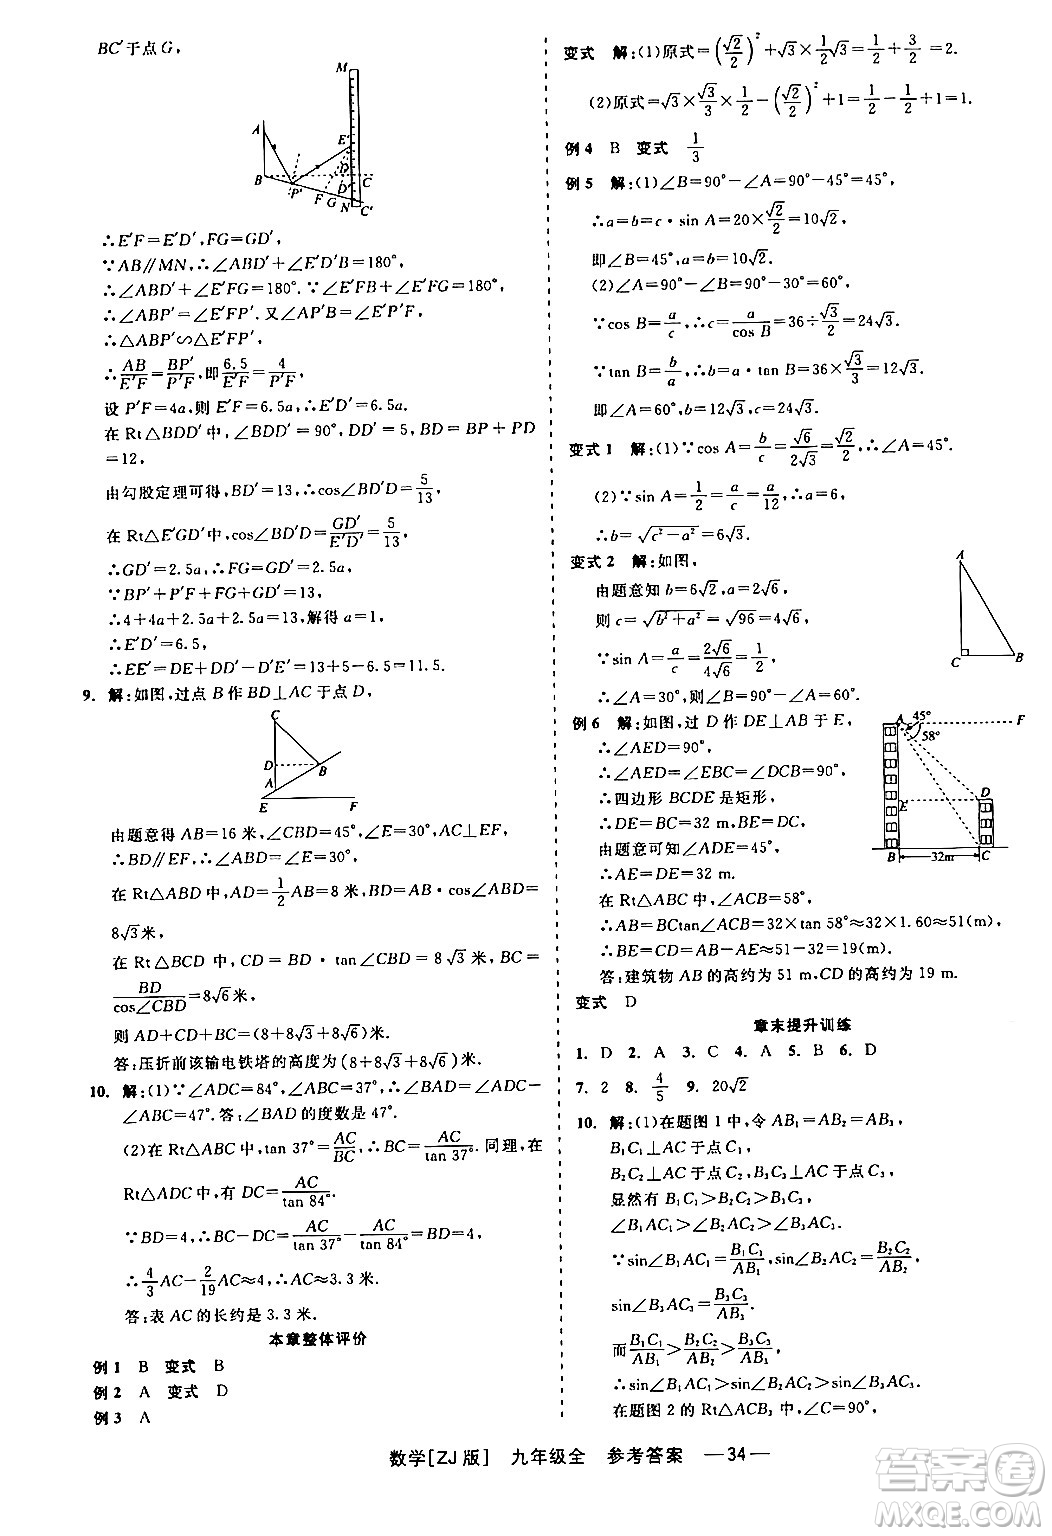 BC′于点G,
M
A
E′
B
D
C
P′
F
G
D′
N
C′
∴E′F=E′D′,FG=GD′,
∵AB∥MN,∴∠ABD′+∠E′D′B=180°,
∴∠ABD′+∠E′FG=180°.∵∠E′FB+∠E′FG=180°,
∴∠ABP′=∠E′FP′.又∠AP′B=∠E′P′F,
∴△ABP′∽△E′FP′,
∴AB/E′F=BP′/P′F,即6.5/E′F=4/P′F,
设P′F=4a,则E′F=6.5a,∴E′D′=6.5a.
在Rt△BDD′中,∠BDD′=90°,DD′=5,BD=BP+PD
=12,
由勾股定理可得,BD′=13,∴cos∠BD′D=5/13,
在Rt△E′GD′中,cos∠BD′D=GD′/E′D′=5/13,
∴GD′=2.5a,∴FG=GD′=2.5a,
∵BP′+P′F+FG+GD′=13,
∴4+4a+2.5a+2.5a=13,解得a=1,
∴E′D′=6.5,
∴EE′=DE+DD′-D′E′=13+5-6.5=11.5.
9. 解:如图,过点B作BD⊥AC于点D,
C
D
B
A
E
F
由题意得AB=16米,∠CBD=45°,∠E=30°,AC⊥EF,
∴BD∥EF,∴∠ABD=∠E=30°,
在Rt△ABD中,AD=1/2AB=8米,BD=AB·cos∠ABD=
8√3米,
在Rt△BCD中,CD=BD·tan∠CBD=8√3米,BC=
BD/cos∠CBD=8√6米,
则AD+CD+BC=(8+8√3+8√6)米.
答:压折前该输电铁塔的高度为(8+8√3+8√6)米.
10. 解:(1)∵∠ADC=84°,∠ABC=37°,∴∠BAD=∠ADC-
∠ABC=47°.答:∠BAD的度数是47°.
(2)在Rt△ABC中,tan 37°=AC/BC,∴BC=AC/tan 37°.同理,在
Rt△ADC中,有DC=AC/tan 84°.
∵BD=4,∴BC-DC=AC/tan 37°-AC/tan 84°=BD=4,
∴4/3AC-2/19AC≈4,∴AC≈3.3米.
答:表AC的长约是3.3米.
本章整体评价
例1 B 变式 B
例2 A 变式 D
例3 A
变式 解:(1)原式=(√2/2)²+√3×1/2×√3=1/2+3/2=2.
(2)原式=√3×√3/3×1/2-(√2/2)²+1=1/2-1/2+1=1.
例4 B 变式 1/3
例5 解:(1)∠B=90°-∠A=90°-45°=45°,
∴a=b=c·sin A=20×√2/2=10√2,
即∠B=45°,a=b=10√2.
(2)∠A=90°-∠B=90°-30°=60°,
∵cos B=a/c,∴c=a/cos B=36÷√3/2=24√3,
∵tan B=b/a,∴b=a·tan B=36×√3/3=12√3,
即∠A=60°,b=12√3,c=24√3.
变式1 解:(1)∵cos A=b/c=√6/2√3=√2/2,∴∠A=45°.
(2)∵sin A=1/2=a/c=a/12,∴a=6,
∴b=√(c²-a²)=6√3.
变式2 解:如图,
由题意知b=6√2,a=2√6,
则c=√(b²+a²)=√96=4√6,
∵sin A=a/c=2√6/4√6=1/2,
∴∠A=30°,则∠B=60°.
A
C
B
例6 解:如图,过D作DE⊥AB于E,
∴∠AED=90°,
∴∠AED=∠EBC=∠DCB=90°,
∴四边形BCDE是矩形,
∴DE=BC=32 m,BE=DC,
由题意可知∠ADE=45°,
∴AE=DE=32 m.
在Rt△ABC中,∠ACB=58°,
∴AB=BCtan∠ACB=32×tan 58°≈32×1.60≈51(m),
∴BE=CD=AB-AE≈51-32=19(m).
答:建筑物AB的高约为51 m,CD的高约为19 m.
A
45°
F
58°
D
E
B
32m
C
变式 D
章末提升训练
1. D 2. A 3. C 4. A 5. B 6. D
7. 2 8. 4/5 9. 20√2
10. 解:(1)在题图1中,令AB₁=AB₂=AB₃,
B₁C₁⊥AC于点C₁,B₂C₂⊥AC于点C₂,
B₃C₃⊥AC于点C₃,
显然有B₁C₁>B₂C₂>B₃C₃,
∠B₁AC₁>∠B₂AC₂>∠B₃AC₃.
∵sin∠B₁AC₁=B₁C₁/AB₁,sin∠B₂AC₂=B₂C₂/AB₂,
sin∠B₃AC₃=B₃C₃/AB₃,
而B₁C₁/AB₁>B₂C₂/AB₂>B₃C₃/AB₃,
∴sin∠B₁AC₁>sin∠B₂AC₂>sin∠B₃AC₃.
在题图2的Rt△ACB₃中,∠C=90°,
数学[ZJ版] 九年级全 参考答案 —34—
答案圈
MXQE.COM